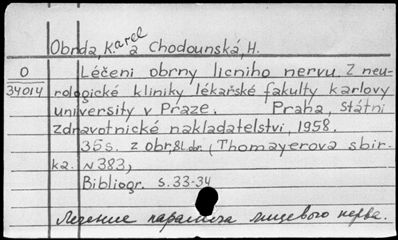 Obrda, Karel a Chodounská, H.
O
34014
Léčeni obrny licniho nervu. Z neu-
rologické kliniky lékařské fakulty karlovy
university v Praze. Praha, státní
zdravotnické nakladatelstvi, 1958.
36s. z obr, 8l. obr. (Thomayerova sbir-
ka. N383)
Bibliogr. s. 33-34
Лечение паралича лицевого нерва.